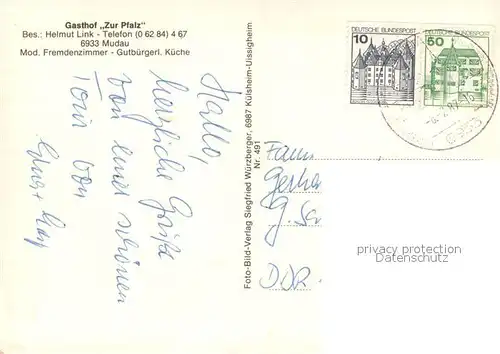 Gasthof „Zur Pfalz"
Bes.: Helmut Link - Telefon (0 62 84) 4 67
6933 Mudau
Mod. Fremdenzimmer - Gutbürgerl. Küche
Hallo,
herzliche Grüße
von einer schönen
Tour von
Foto-Bild-Verlag Siegfried Würzberger, 6987 Külsheim-Uissigheim
Nr. 491
DEUTSCHE BUNDESPOST
10
DEUTSCHE BUNDESPOST
50
Fam
Gerha
G. Sc
DDR
privacy protection
Datenschutz